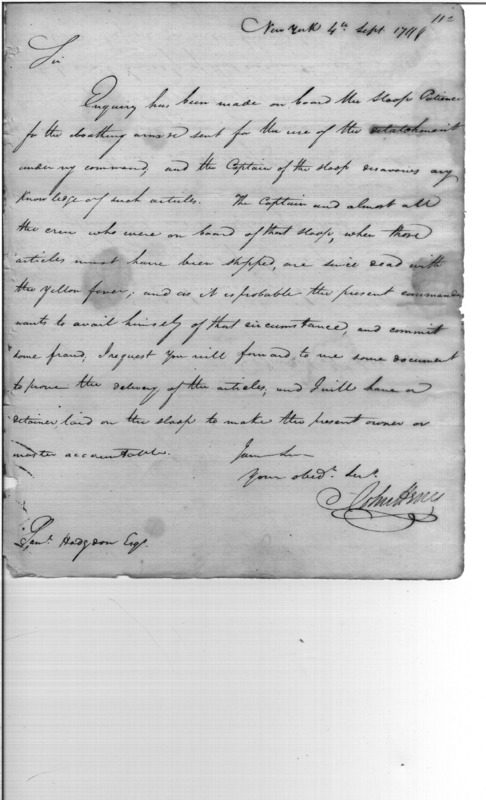 112
New York 4th Sept 1798
Sir
Enquiry has been made on board the Sloop Patience
for the cloathing arms &c sent for the use of the detatchment
under my command, and the Captain of the sloop disavows any
knowledge of such articles. The Captain and almost all
the crew who were on board of that sloop, when those
articles must have been shipped, are since dead with
the yellow fever; and as it is probable the present commander
wants to avail himself of that circumstance, and commit
some fraud, I request you will forward to me some document
to prove the delivery of the articles, and I will have a
detainer laid on the sloop to make the present owner or
master accountable.
I am Sir
Your obedt. Servt.
John
Saml. Hodgdon Esqr.